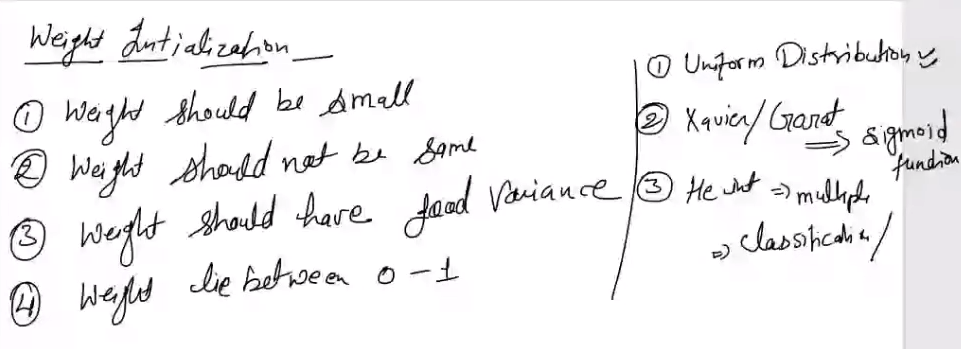 Weight Intialization
① Weight should be small
② Weight should not be same
③ Weight should have good Variance
④ Weight lie between 0-1
① Uniform Distribution
② Xavier/
⇒ sigmoid
function
③ He init ⇒ multiple
⇒ Classification